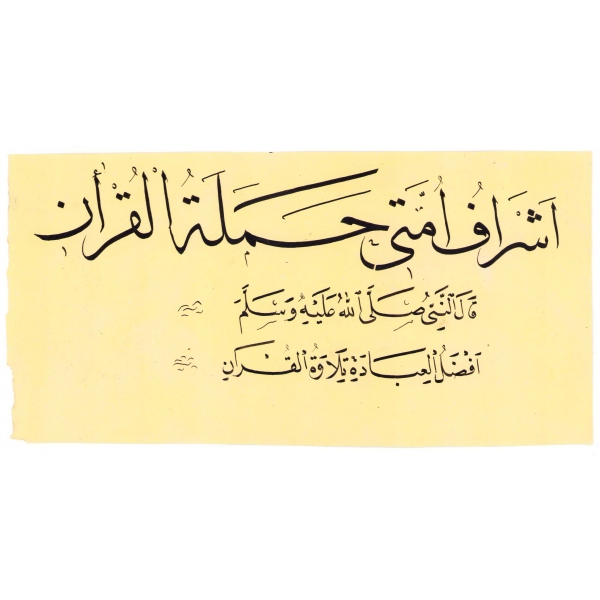 اَشْرَافُ اُمَّتِي حَمَلَةُ الْقُرْأٰنِ
قَالَ النَّبِيُّ صَلَّى اللهُ عَلَيْهِ وَسَلَّمَ
اَفْضَلُ الْعِبَادَةِ تِلَاوَةُ الْقُرْاٰنِ